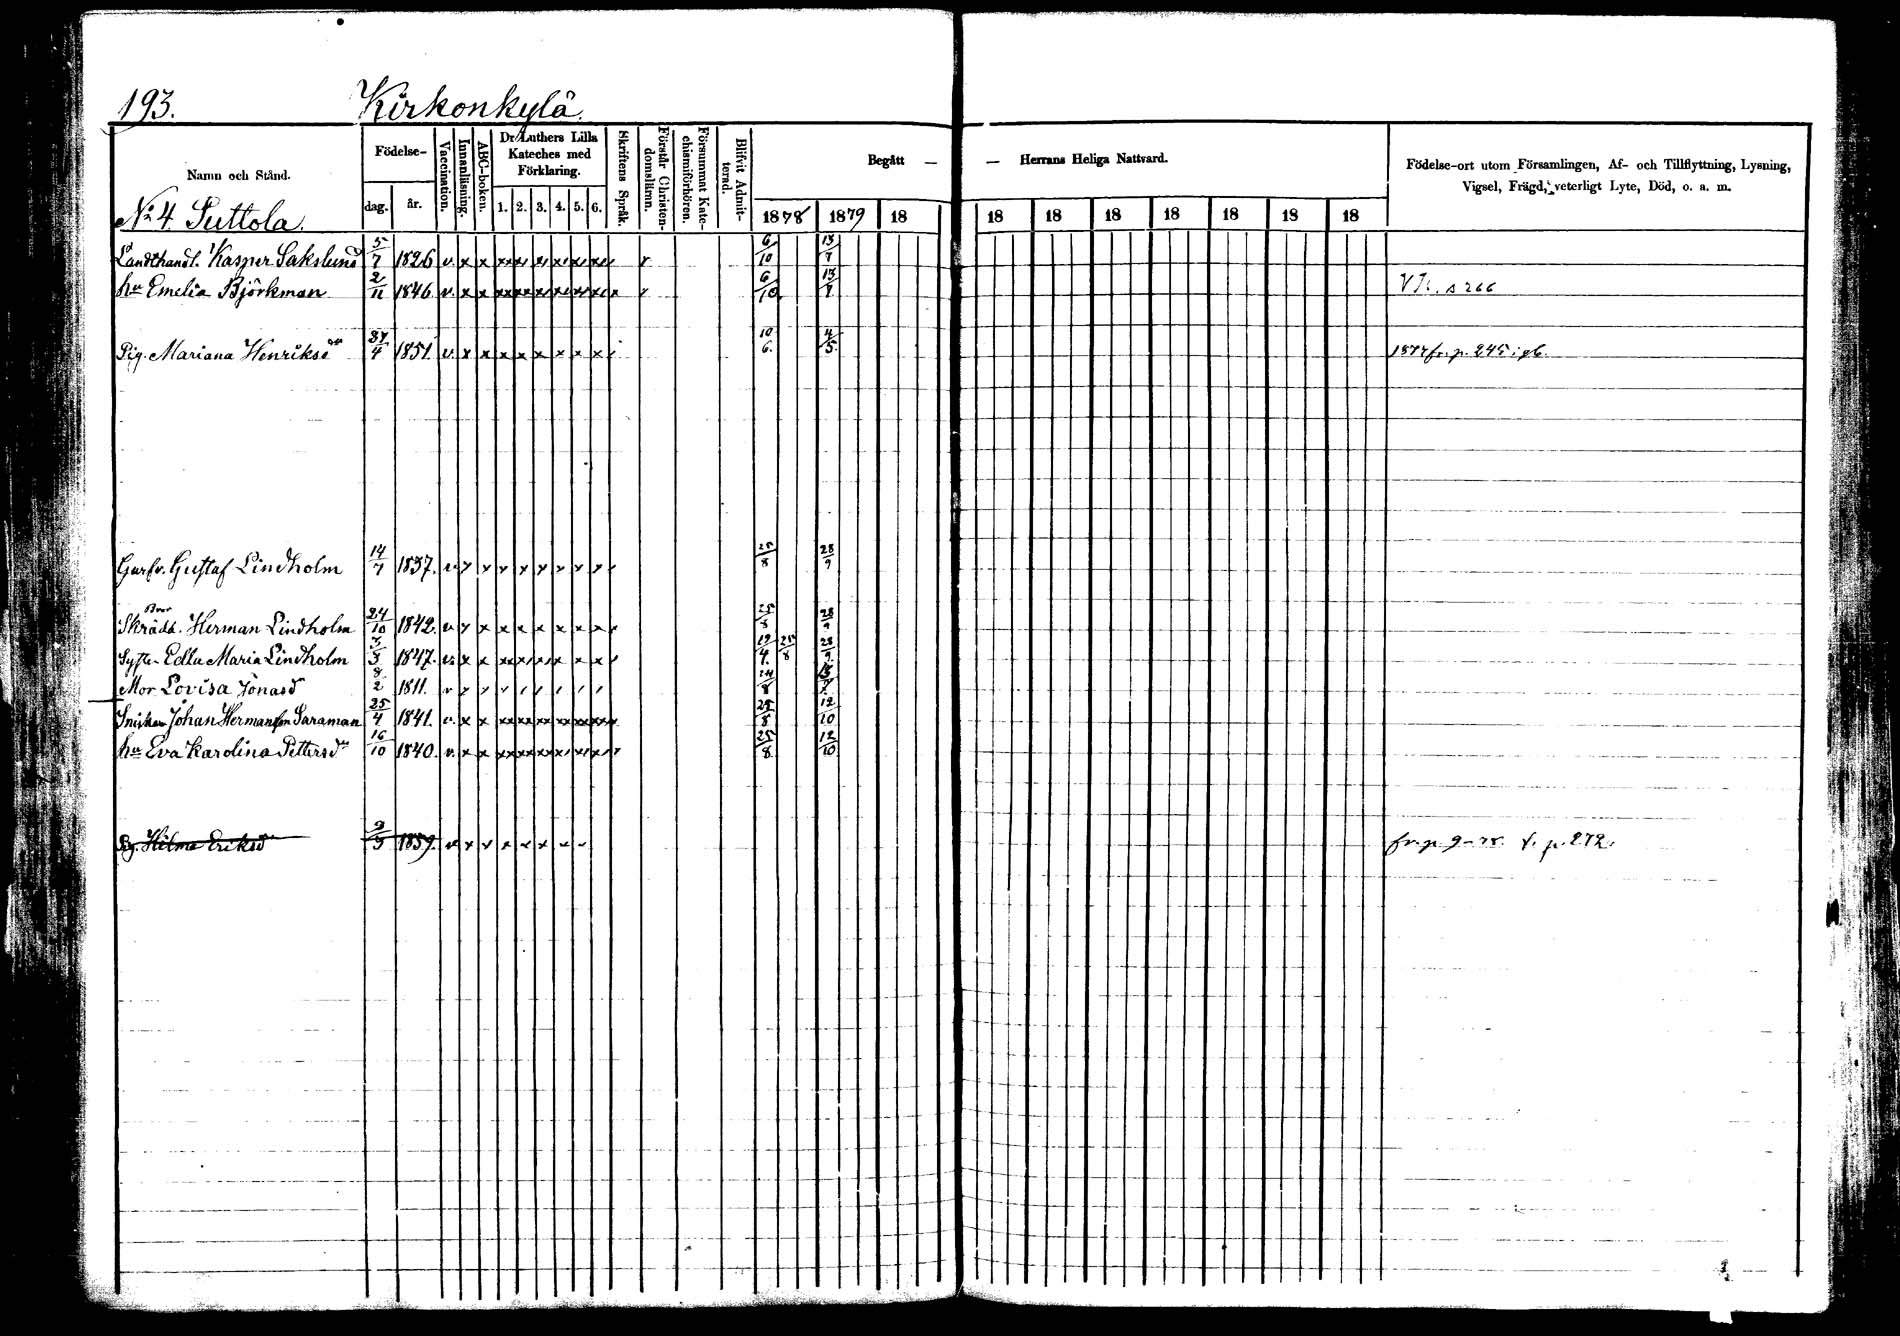 193. Kirkonkylä.
Namn och Stånd.
Födelse-
dag. år.
Vaccination.
Innanläsning.
ABC-boken.
Dr Luthers Lilla Kateches med Förklaring.
1. 2. 3. 4. 5. 6.
Skriftens Språk.
Förstår Christendomslärnn.
Försummat Katechismiförhören.
Blifvit Admitterad.
Begått — — Herrans Heliga Nattvard.
1878 1879 18 18 18 18 18 18 18 18
Födelse-ort utom Församlingen, Af- och Tillflyttning, Lysning,
Vigsel, Frägd, veterligt Lyte, Död, o. a. m.
No 4. Suttola.
Landthandl. Kasper Sakslund 5/7 1826 v. x x 6/10 13/7
hu Emelia Björkman 2/11 1846 v. x x 6/10 13/7 s 266
Pig. Mariana Henriksdr 27/4 1851. v. x x x x x x x x 10/6. 4/5. fr. p. 245
Garfv. Gustaf Lindholm 14/7 1837. v. x x x x x x x x 25/8 28/9
Bror
Skrädd. Herman Lindholm 24/10 1842. v. x x x x x x x x 25/8 28/9
Syster Edla Maria Lindholm 7/3 1847. v. x x 19/4. 25/8 28/9.
Mor Lovisa Jonasd 8/2 1811. v 14/8
Snickar Johan Hermansson Saraman 25/4 1841. v. x x 25/8 12/10
hu Eva Karolina Pettersdr 16/10 1840. v. x x 25/8. 12/10
Pig. Hilma Eriksdr 9/5 1859. fr. p. 9 t. p. 272.